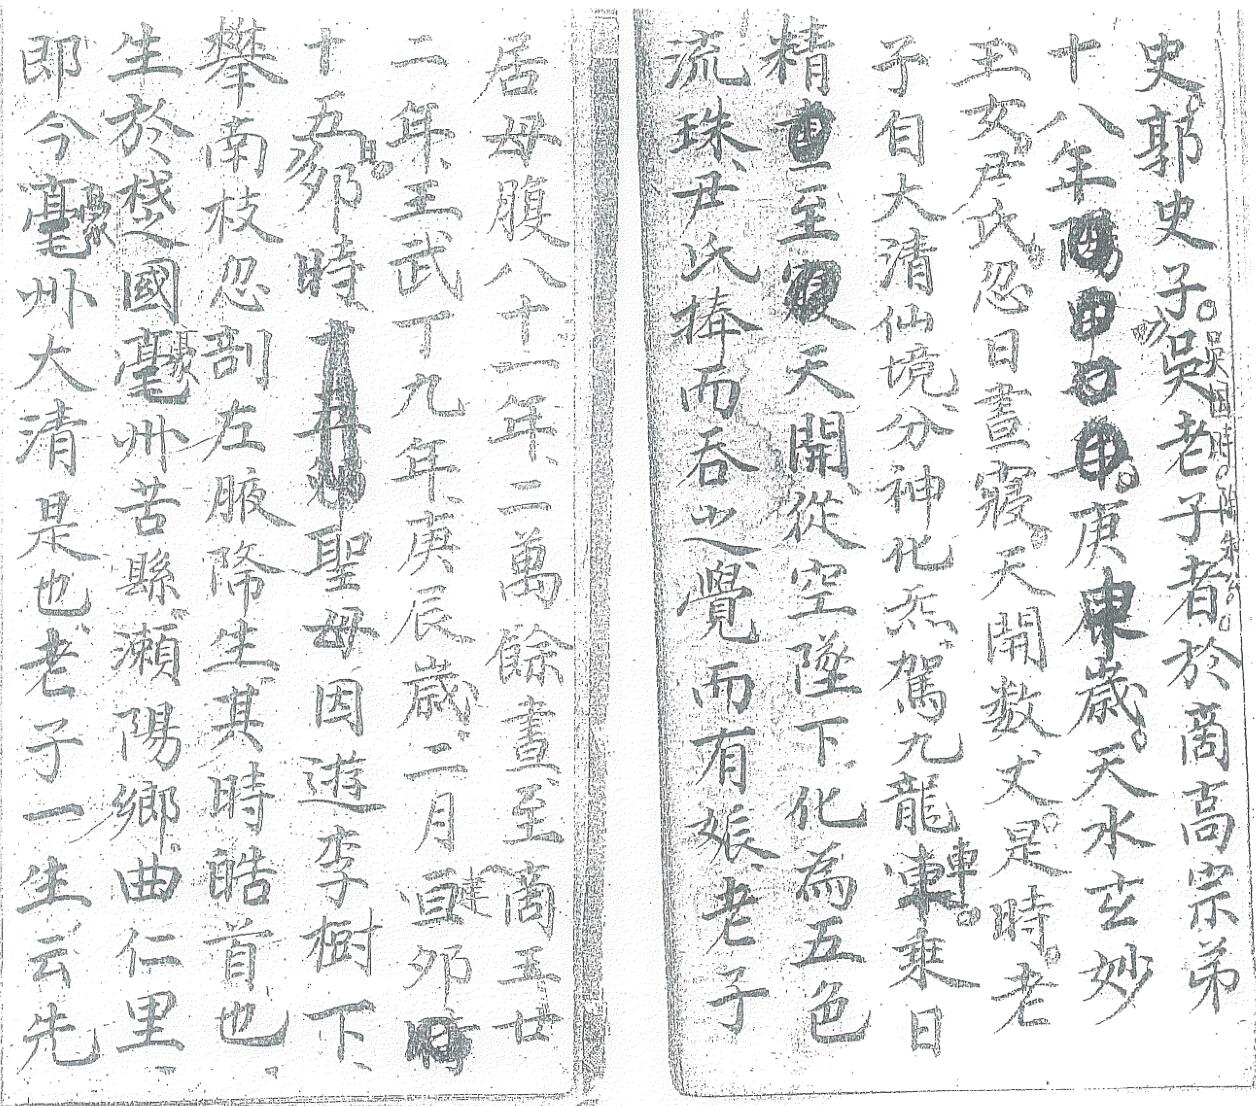 史郭史子吳老子者於商高宗弟
吳国時
十八年庚申歲天水玄妙
玉女尹氏忽日晝寢天開数丈是時老
子自大清仙境分神化炁駕九龍車乘日
精至天開從空墜下化為五色
流珠尹氏捧而吞之覺而有娠老子
居母腹八十一年二萬餘晝至商王廿
二年王武丁九年庚辰歲二月建夘
十五日夘時聖母因遊李樹下
攀南枝忽剖左腋降生其時皓首也
生於楚國亳州苦縣瀨陽鄉曲仁里
即今亳州大清是也老子一生云先